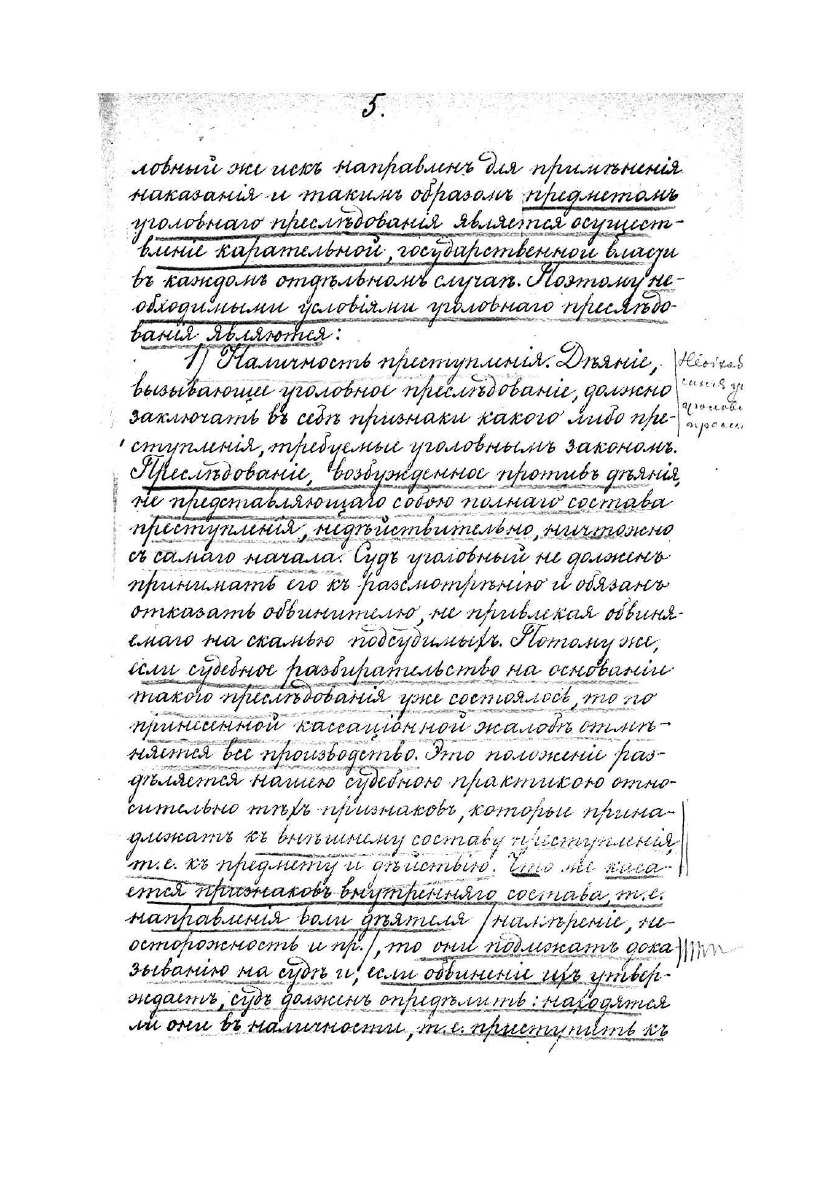 5.
ловный же искъ направленъ для примѣненія
наказанія и такимъ образомъ предметомъ
уголовнаго преслѣдованія является осущест-
вленіе карательной, государственной власти
въ каждомъ отдѣльномъ случаѣ. Поэтому не-
обходимыми условіями уголовнаго преслѣдо-
ванія являются:
1) Наличность преступленія. Дѣяніе,
вызывающее уголовное преслѣдованіе, должно
заключать въ себѣ признаки какого либо пре-
ступленія, требуемые уголовнымъ закономъ.
Преслѣдованіе, возбужденное противъ дѣянія,
не представляющаго собою полнаго состава
преступленія, недѣйствительно, ничтожно
съ самаго начала. Судъ уголовный не долженъ
принимать его къ разсмотрѣнію и обязанъ
отказать обвинителю, не привлекая обвиня-
емаго на скамью подсудимыхъ. Потому же,
если судебное разбирательство на основаніи
такого преслѣдованія уже состоялось, то по
принесенной кассаціонной жалобѣ отмѣ-
няется все производство. Это положеніе раз-
дѣляется нашею судебною практикою отно-
сительно тѣхъ признаковъ, которые прина-
длежатъ къ внѣшнему составу преступленія,
т.е. къ предмету и дѣйствію. Что же каса-
ется признаковъ внутренняго состава, т.е.
направленія воли дѣятеля /намѣреніе, не-
осторожность и пр./, то они подлежатъ дока
зыванію на судѣ и, если обвиненіе ихъ утвер-
ждаетъ, судъ долженъ опредѣлить: находятся
ли они въ наличности, т.е. приступить къ